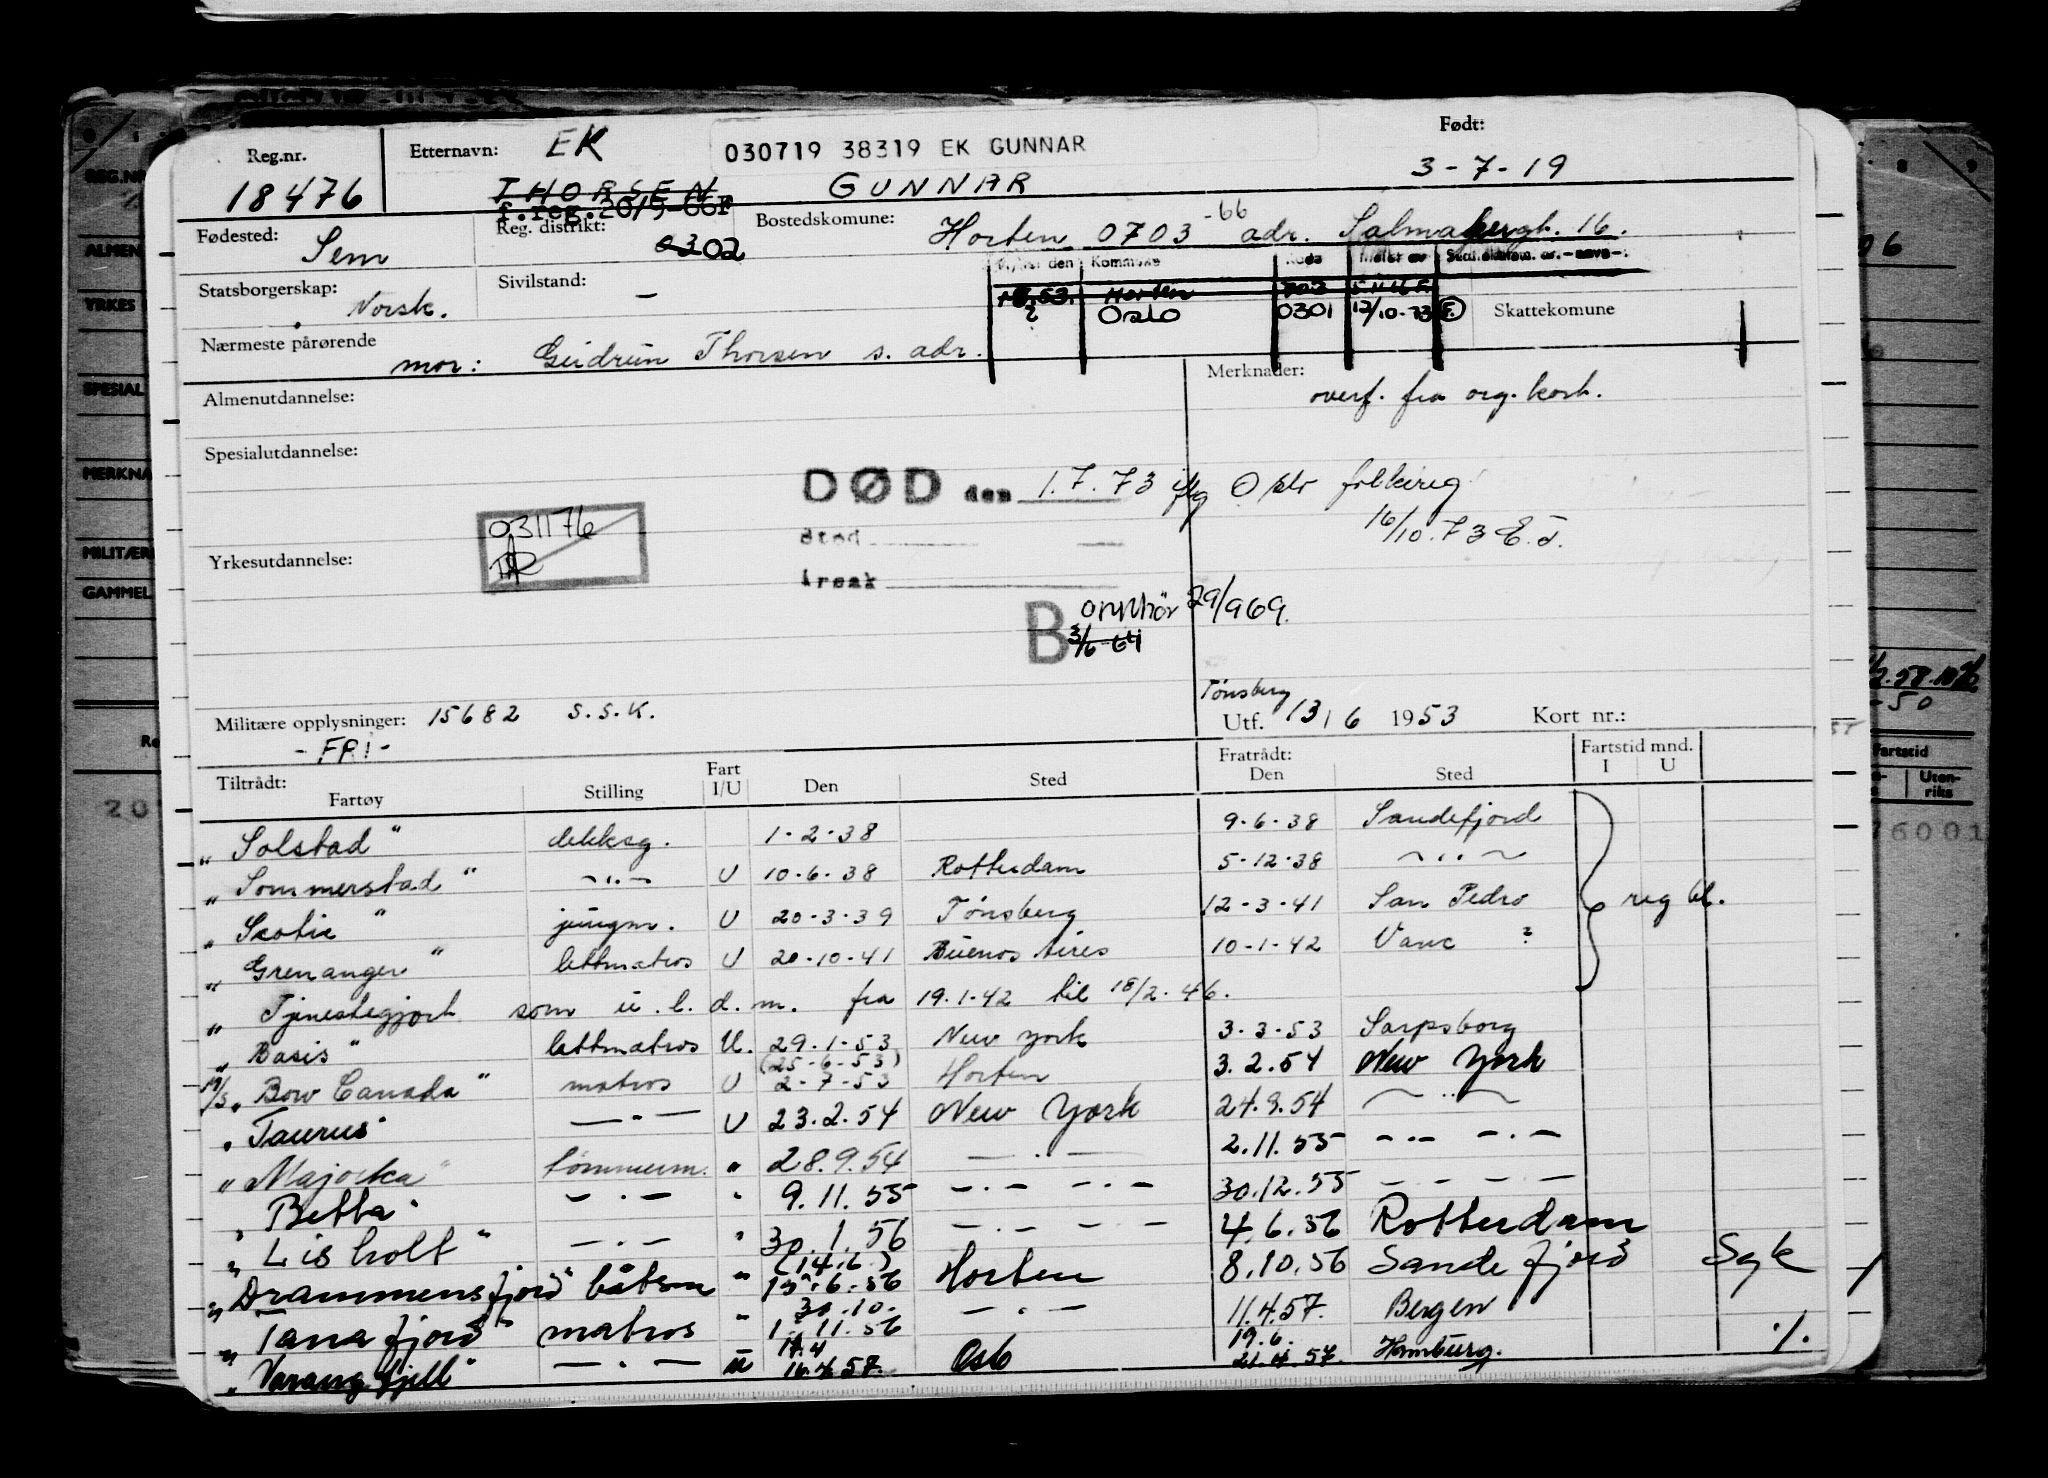 Reg.nr. Etternavn: EK 030719 38319 EK GUNNAR Født:
18476 THORSEN GUNNAR 3-7-19
f.reg.20/5-66F
Fødested: Sem Reg. distrikt: 0302 Bostedskomune: Horten 0703 -66 adr. 16.
den Kommune Kode Meldt av
Statsborgerskap: Norsk. Sivilstand: — Horten
Oslo 0301 12/10-73 Skattekomune
Nærmeste pårørende mor: Gudrun Thorsen s. adr.
Almenutdannelse: Merknader: overf. fra org. kort.
Spesialutdannelse:
DØD den 1.7.73 iflg Oslo folkereg
031176 16/10.73 E.J.
Sted
Yrkesutdannelse:
Årsak
B 29/9 69.
3/6-64
Tønsberg
Militære opplysninger: 15682 S.S.K. Utf. 13/6 1953 Kort nr.:
- FRI -
Tiltrådt: Fratrådt: Fartstid mnd.
Fartøy Stilling Fart I/U Den Sted Den Sted I U
"Solstad" dekksg. 1-2-38 9-6-38 Sandefjord
"Sommerstad" —"— U 10-6-38 Rotterdam 5-12-38 —"—
"Scotia" jungm. U 20-3-39 Tønsberg 12-3-41 San Pedro reg bl.
"Grenanger" lettmatros U 20-10-41 Buenos Aires 10-1-42 Vanc ?
" Tjenestegjort som u.b.d.m. fra 19.1-42 til 18/2.46.
"Basis" lettmatros U. 29.1-53 New York 3-3-53 Sarpsborg
(25-6-53)
19/3 "Bow Canada" matros U 2-7-53 Horten 3.2.54 New York
"Taurus" —"— U 23.2.54 New York 24.9.54 —"—
"Majorka" tømmerm. " 28.9.54 —"— 2.11.55 —"— —"—
"Betta" —"— " 9.11.55 —"— —"— 30.12.55 —"— —"—
"Lisholt" —"— " 30.1.56 —"— —"— 4.6.56 Rotterdam
(14.6)
"Drammensfjord" båtsm " 15.6.56 Horten 8.10.56 Sandefjord Syk
30.10.
"Tanafjord" matros " 1.11.56 —"— 11.4.57. Bergen
17.4 19.6.
"Varangfjell" —"— u 16.4.57. Oslo 21.4.57. Hamburg. ./.